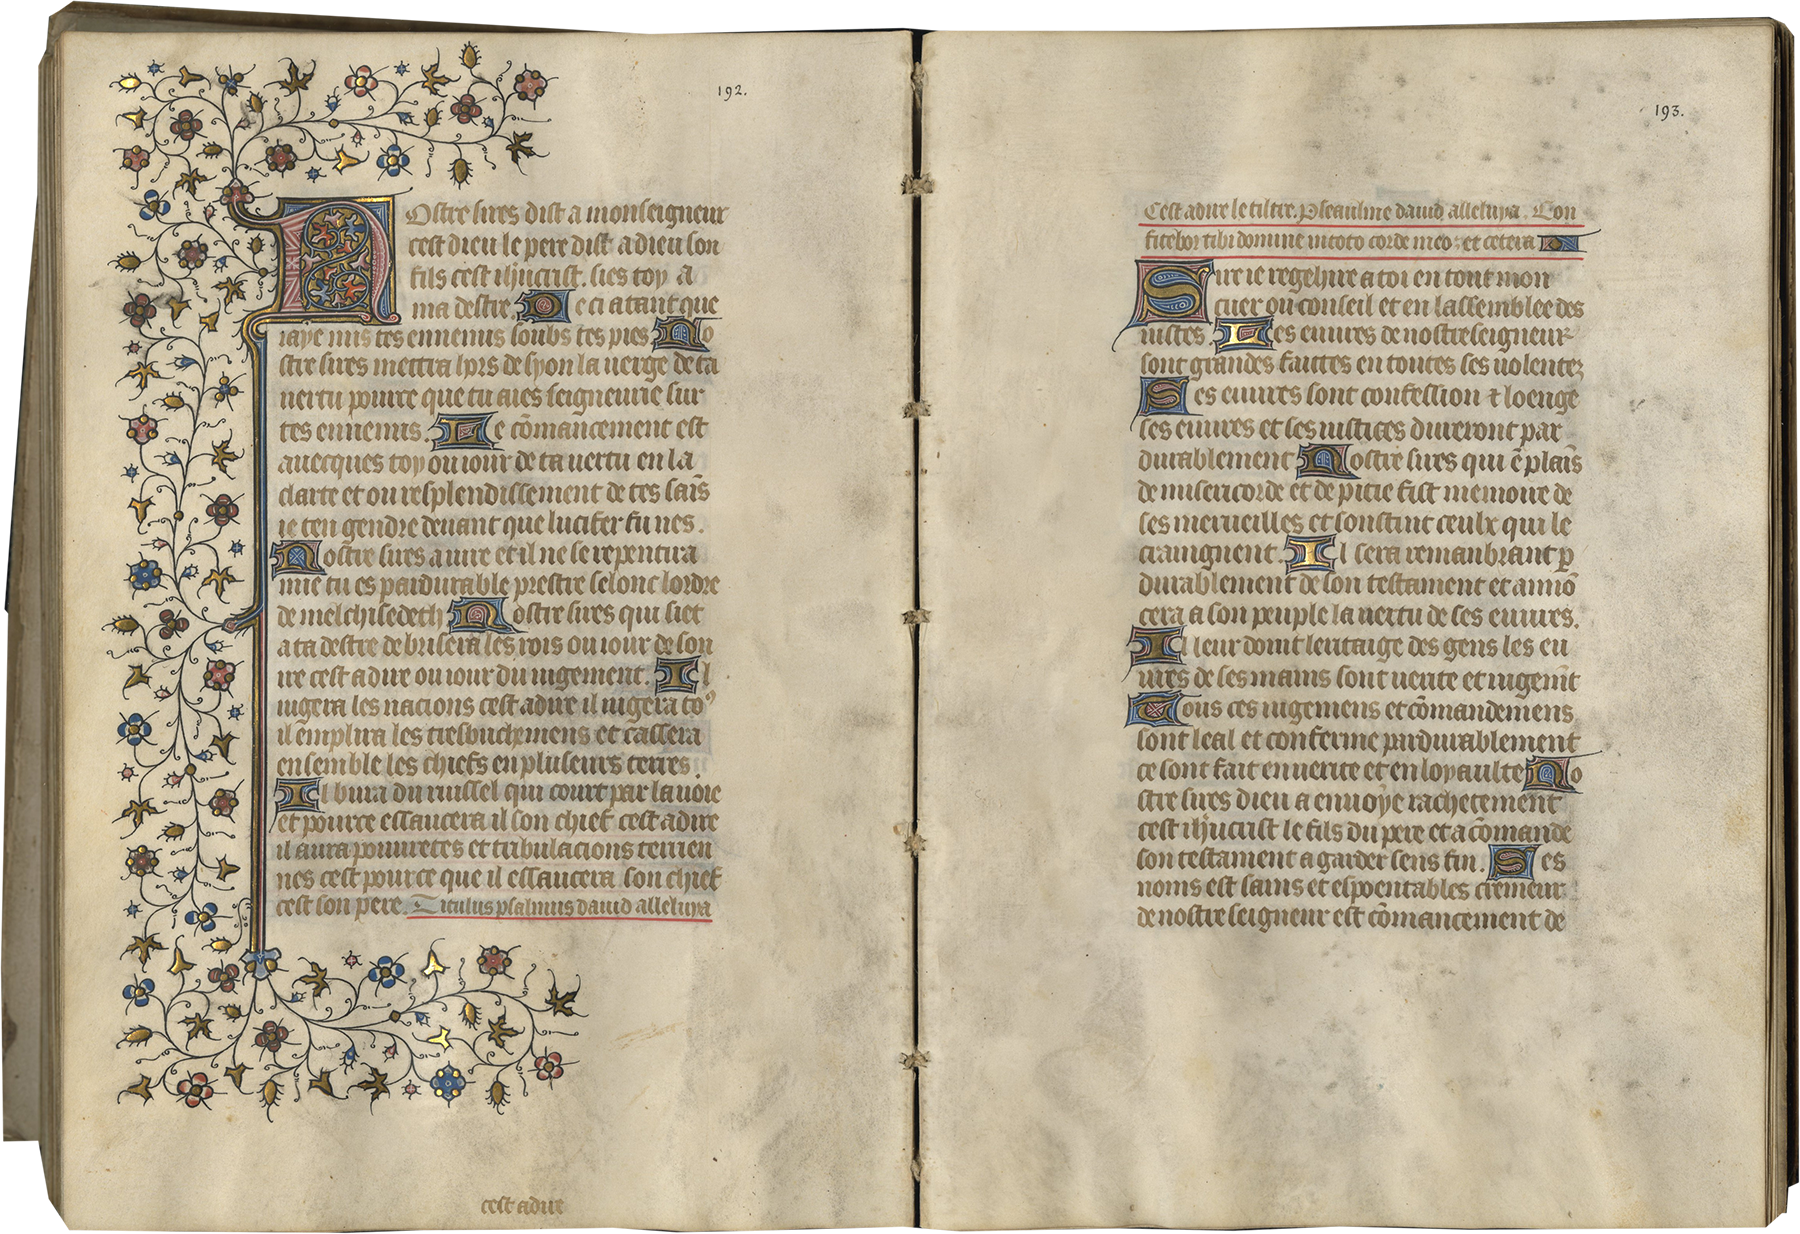 192.
Nostre sires dist a monseigneur
cest dieu le pere dist a dieu son
fils cest ihucrist. sies toy a
ma destre. De ci a tant que
iaye mis tes ennemis soubs tes pies No
stre sires mettra hors de syon la uerge de ta
uertu pource que tu aies seigneurie sur
tes ennemis. Le cōmancement est
auecques toy ou iour de ta uertu en la
clarte et ou resplendissement de tes sais
ie ten gendre deuant que lucifer fu nes.
Nostre sires a iure et il ne se repentira
mie tu es pardurable prestre selonc lordre
de melchisedech. Nostre sires qui siet
a ta destre debrisera les rois ou iour de son
ire cest adire ou iour du iugement. Il
iugera les nacions cest adire il iugera to⁹
il emplira les tresbuchemens et cassera
ensemble les chiefs en pluseurs terres.
Il bura du ruissel qui court par la uoie
et pource essaucera il son chief cest adire
il aura pouuretes et tribulacions terrien
nes cest pource que il essaucera son chief
cest son pere. Titulus psalmus dauid alleluya
cest adire
193.
Cest adire le tiltre. Pseaulme dauid alleluya. Con
fitebor tibi domine in toto corde meo: et cetera
Sire ie regehire a toi en tout mon
cuer ou conseil et en lassemblee des
iustes Les euures de nostreseigneur
sont grandes faittes en toutes ses uolentez
Ses euures sont confession et loenge
ses euures et ses iustices dureront par
durablement Nostre sires qui ē plais
de misericorde et de pitie fist memoire de
ses merueilles et soustint ceulx qui le
craingnent. Il sera remanbrant p
durablement de son testament et annō
cera a son peuple la uertu de ses euures.
Il leur doint leritaige des gens les eu
ures de ses mains sont uerite et iugemt
Tous ces iugemens et cōmandemens
sont leal et conferme pardurablement
ce sont fait en uerite et en loyaulte No
stre sires dieu a enuoye rachetement
cest ihucrist le fils du pere et a cōmande
son testament a garder sens fin. Ses
noms est sains et espoentables cremeur
de nostre seigneur est cōmancement de